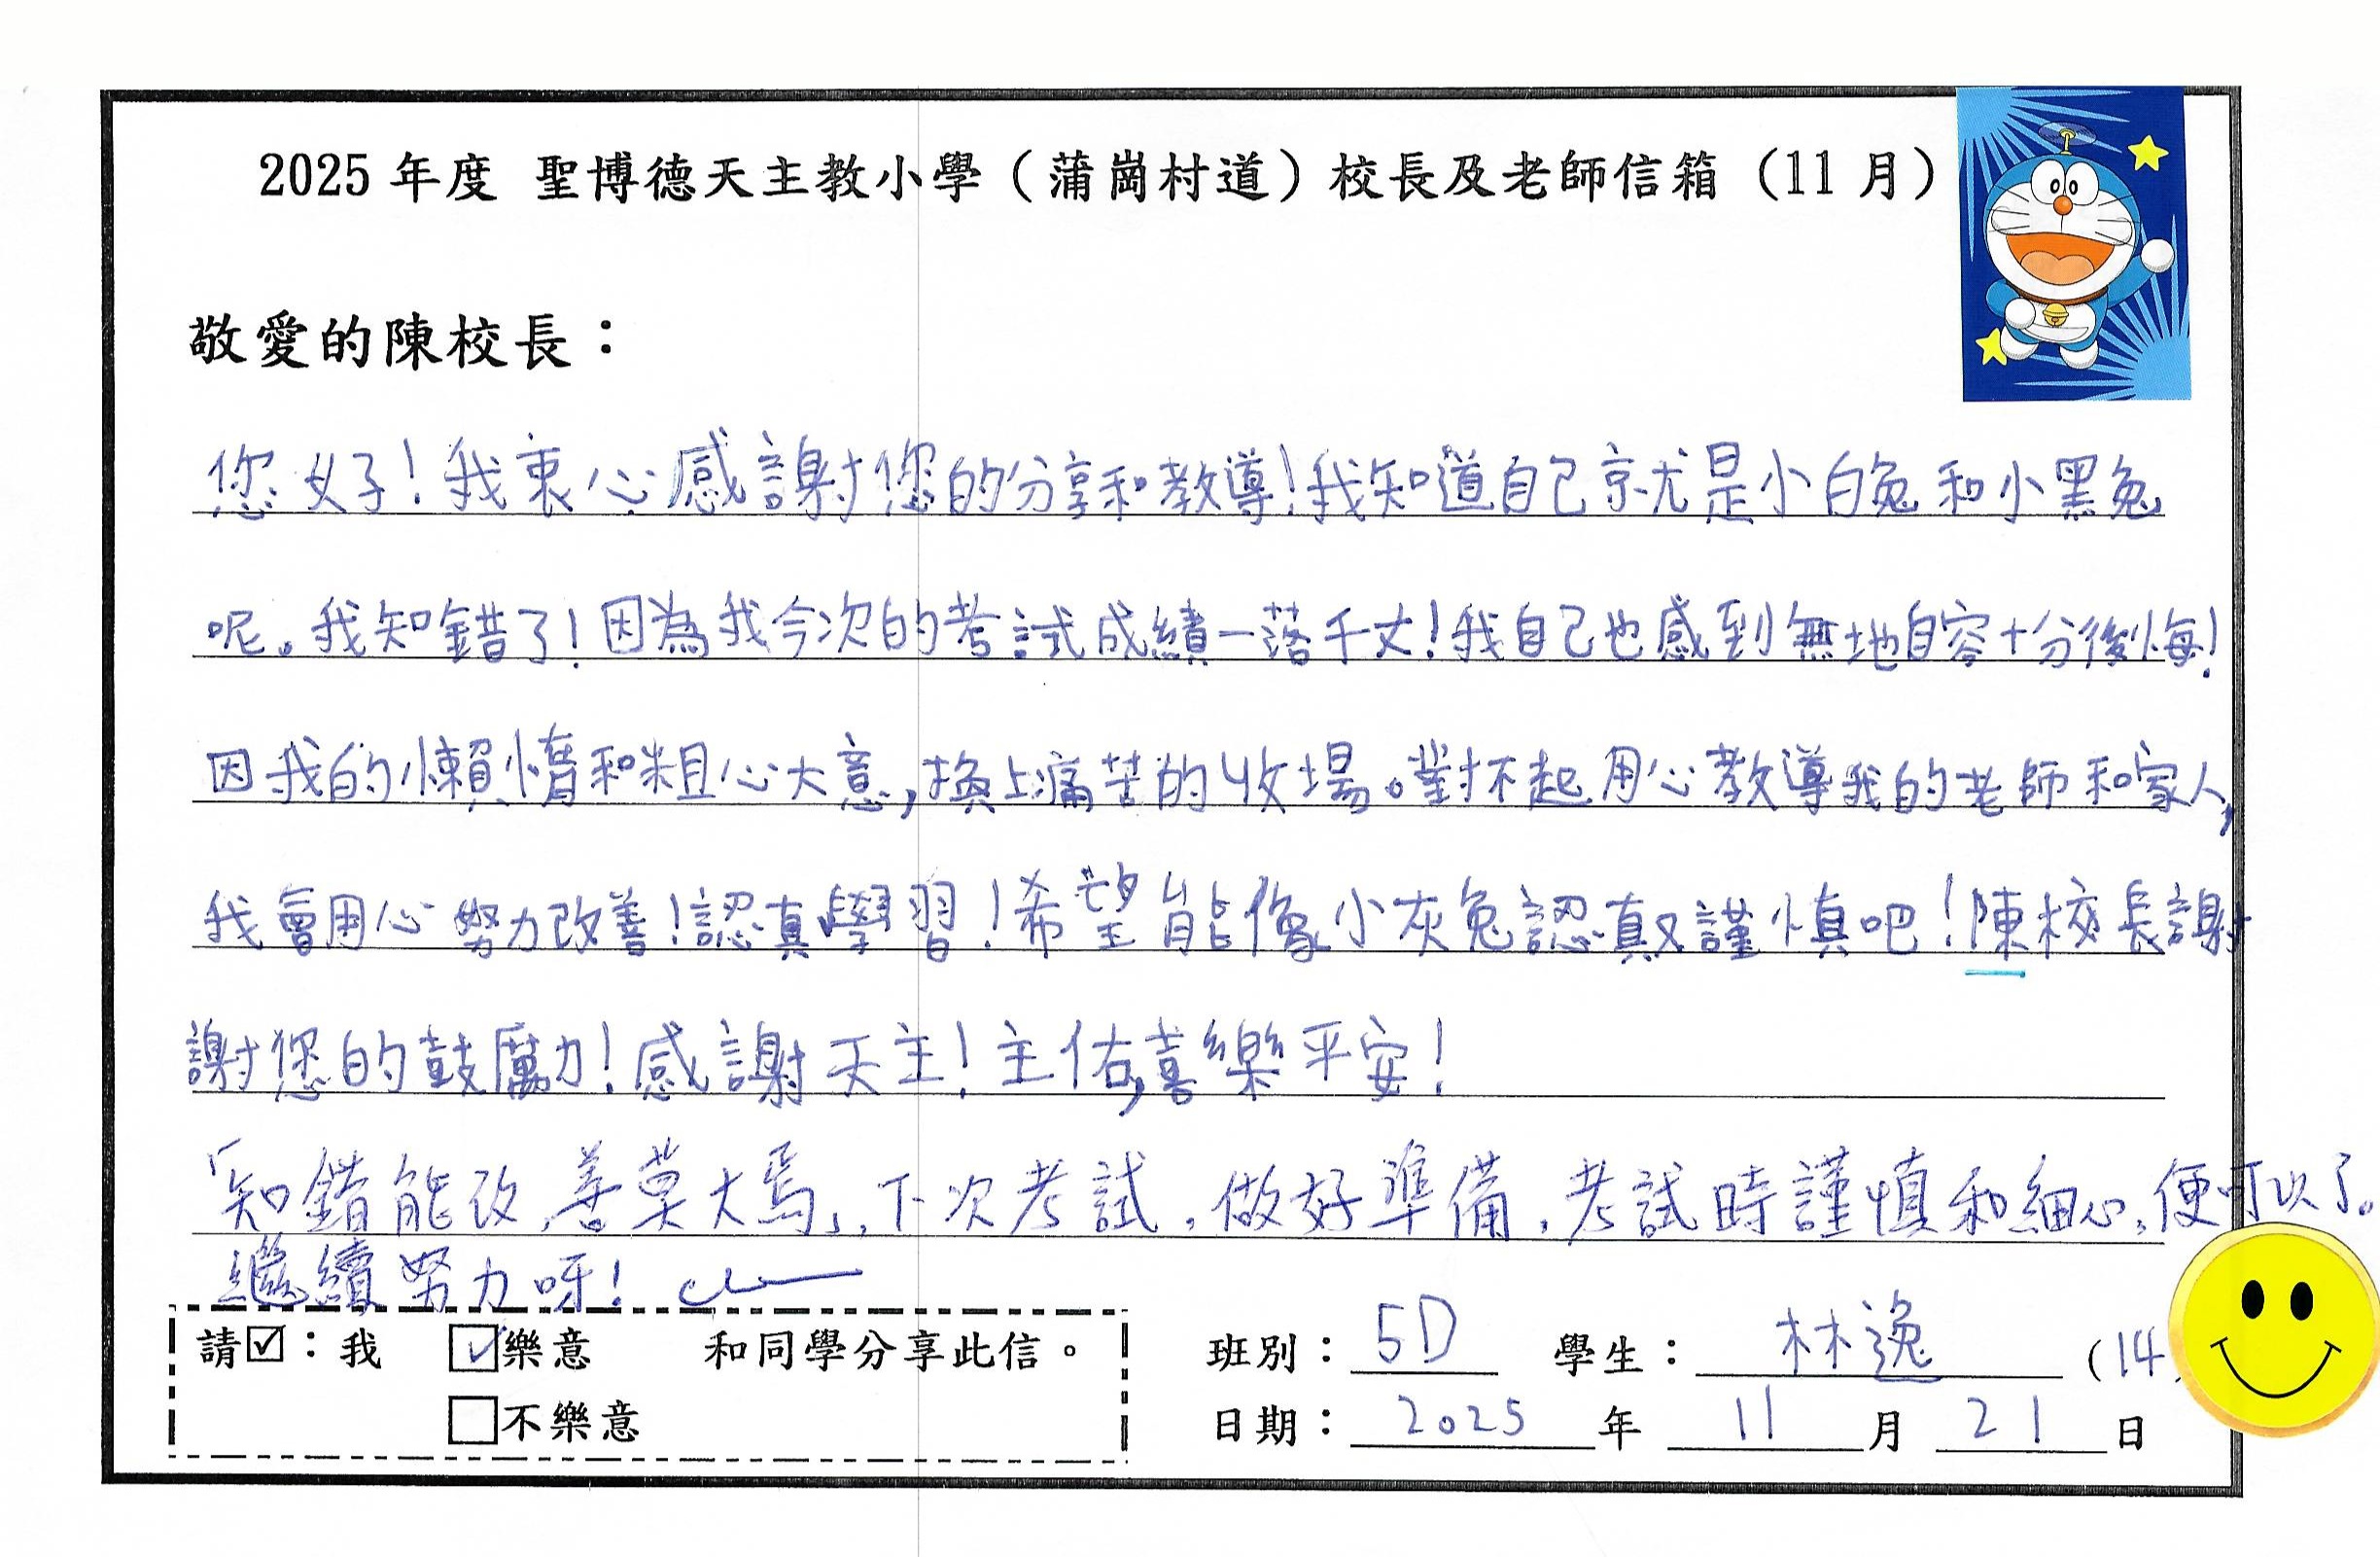 2025 年度 聖博德天主教小學（蒲崗村道）校長及老師信箱（11 月）
敬愛的陳校長：
您好！我衷心感謝您的分享和教導！我知道自己就是小白兔和小黑兔
呢。我知錯了！因為我今次的考試成績一落千丈！我自己也感到無地自容十分後悔！
因我的懶惰和粗心大意，換上痛苦的收場。對不起用心教導我的老師和家人，
我會用心努力改善！認真學習！希望能像小灰兔認真又謹慎吧！陳校長謝
謝您的鼓勵！感謝天主！主佑，喜樂平安！
「知錯能改，善莫大焉」，下次考試，做好準備，考試時謹慎和細心，便可以了。
繼續努力呀！
請☑：我 ☑樂意 和同學分享此信。
□不樂意
班別：5D 學生：林逸 （14
日期：2025 年 11 月 21 日